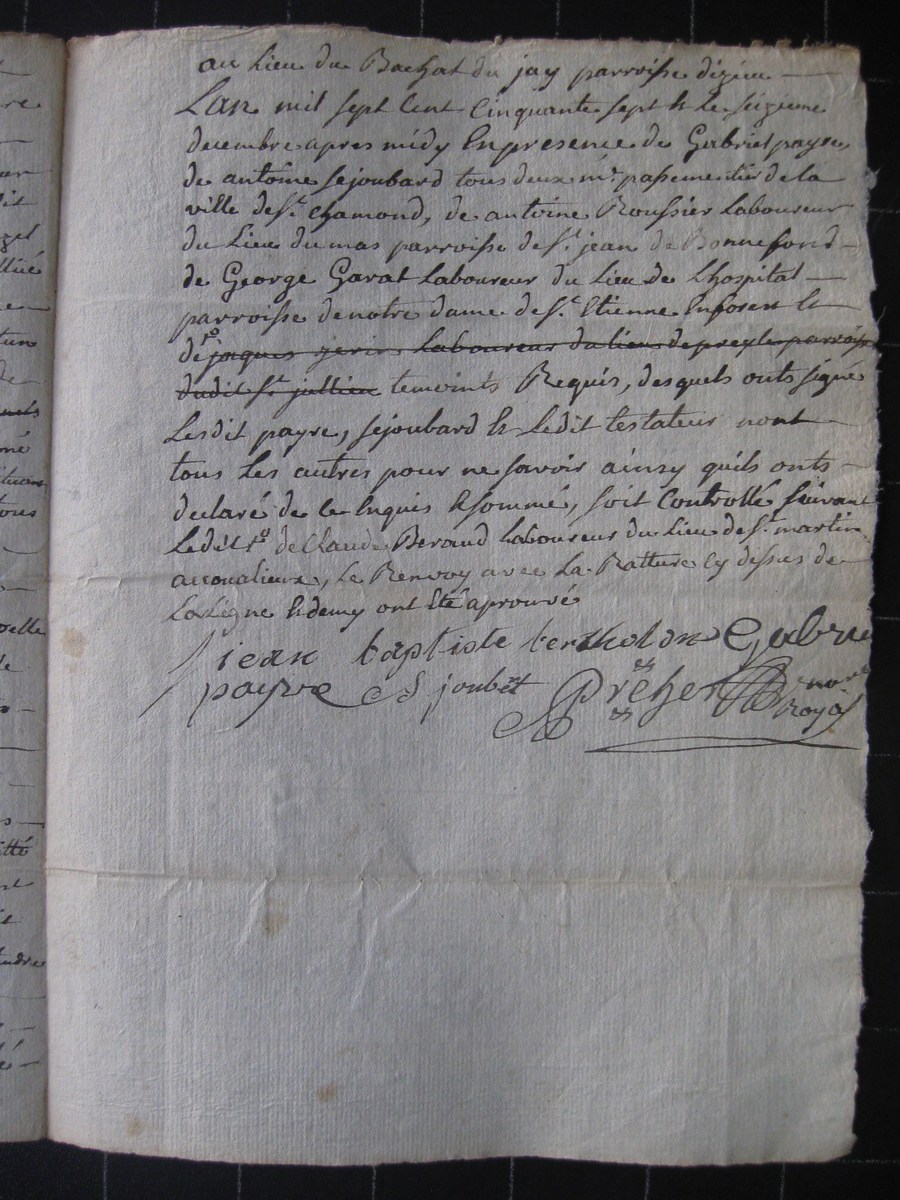 au Lieu du Bachat du jay parroisse dizieu
Lan mil sept Cent Cinquante sept & Le seizieme
decembre apres midy En presence de Gabriel payre,
de antoine sejoubard tous deux mres passementier de la
ville de st. chamond, de antoine Roussier Laboureur
du Lieu du mas parroisse de st. jean de Bonnefond
de George Garat Laboureur du Lieu de Lhospital
parroisse de notre dame de st. Etienne En forest &
de jaques Laboureur du lieu de parroisse
dudit st. jullien temoints Requis, desquels onts signé
Lesdit payre, sejoubard & Ledit testateur nont
tous Les autres pour ne savoir ainsy quils onts
declaré de ce Enquis & sommé, soit Controllé suivant
Ledit ro de Claude Beraud Laboureur du Lieu de st. martin
acoualieux, Le Renvoy avec La Ratture Cy dessus de
La Ligne & demy ont Eté aprouvé
jean baptiste bertholon Gabriel
payre S joubet not re
Royal